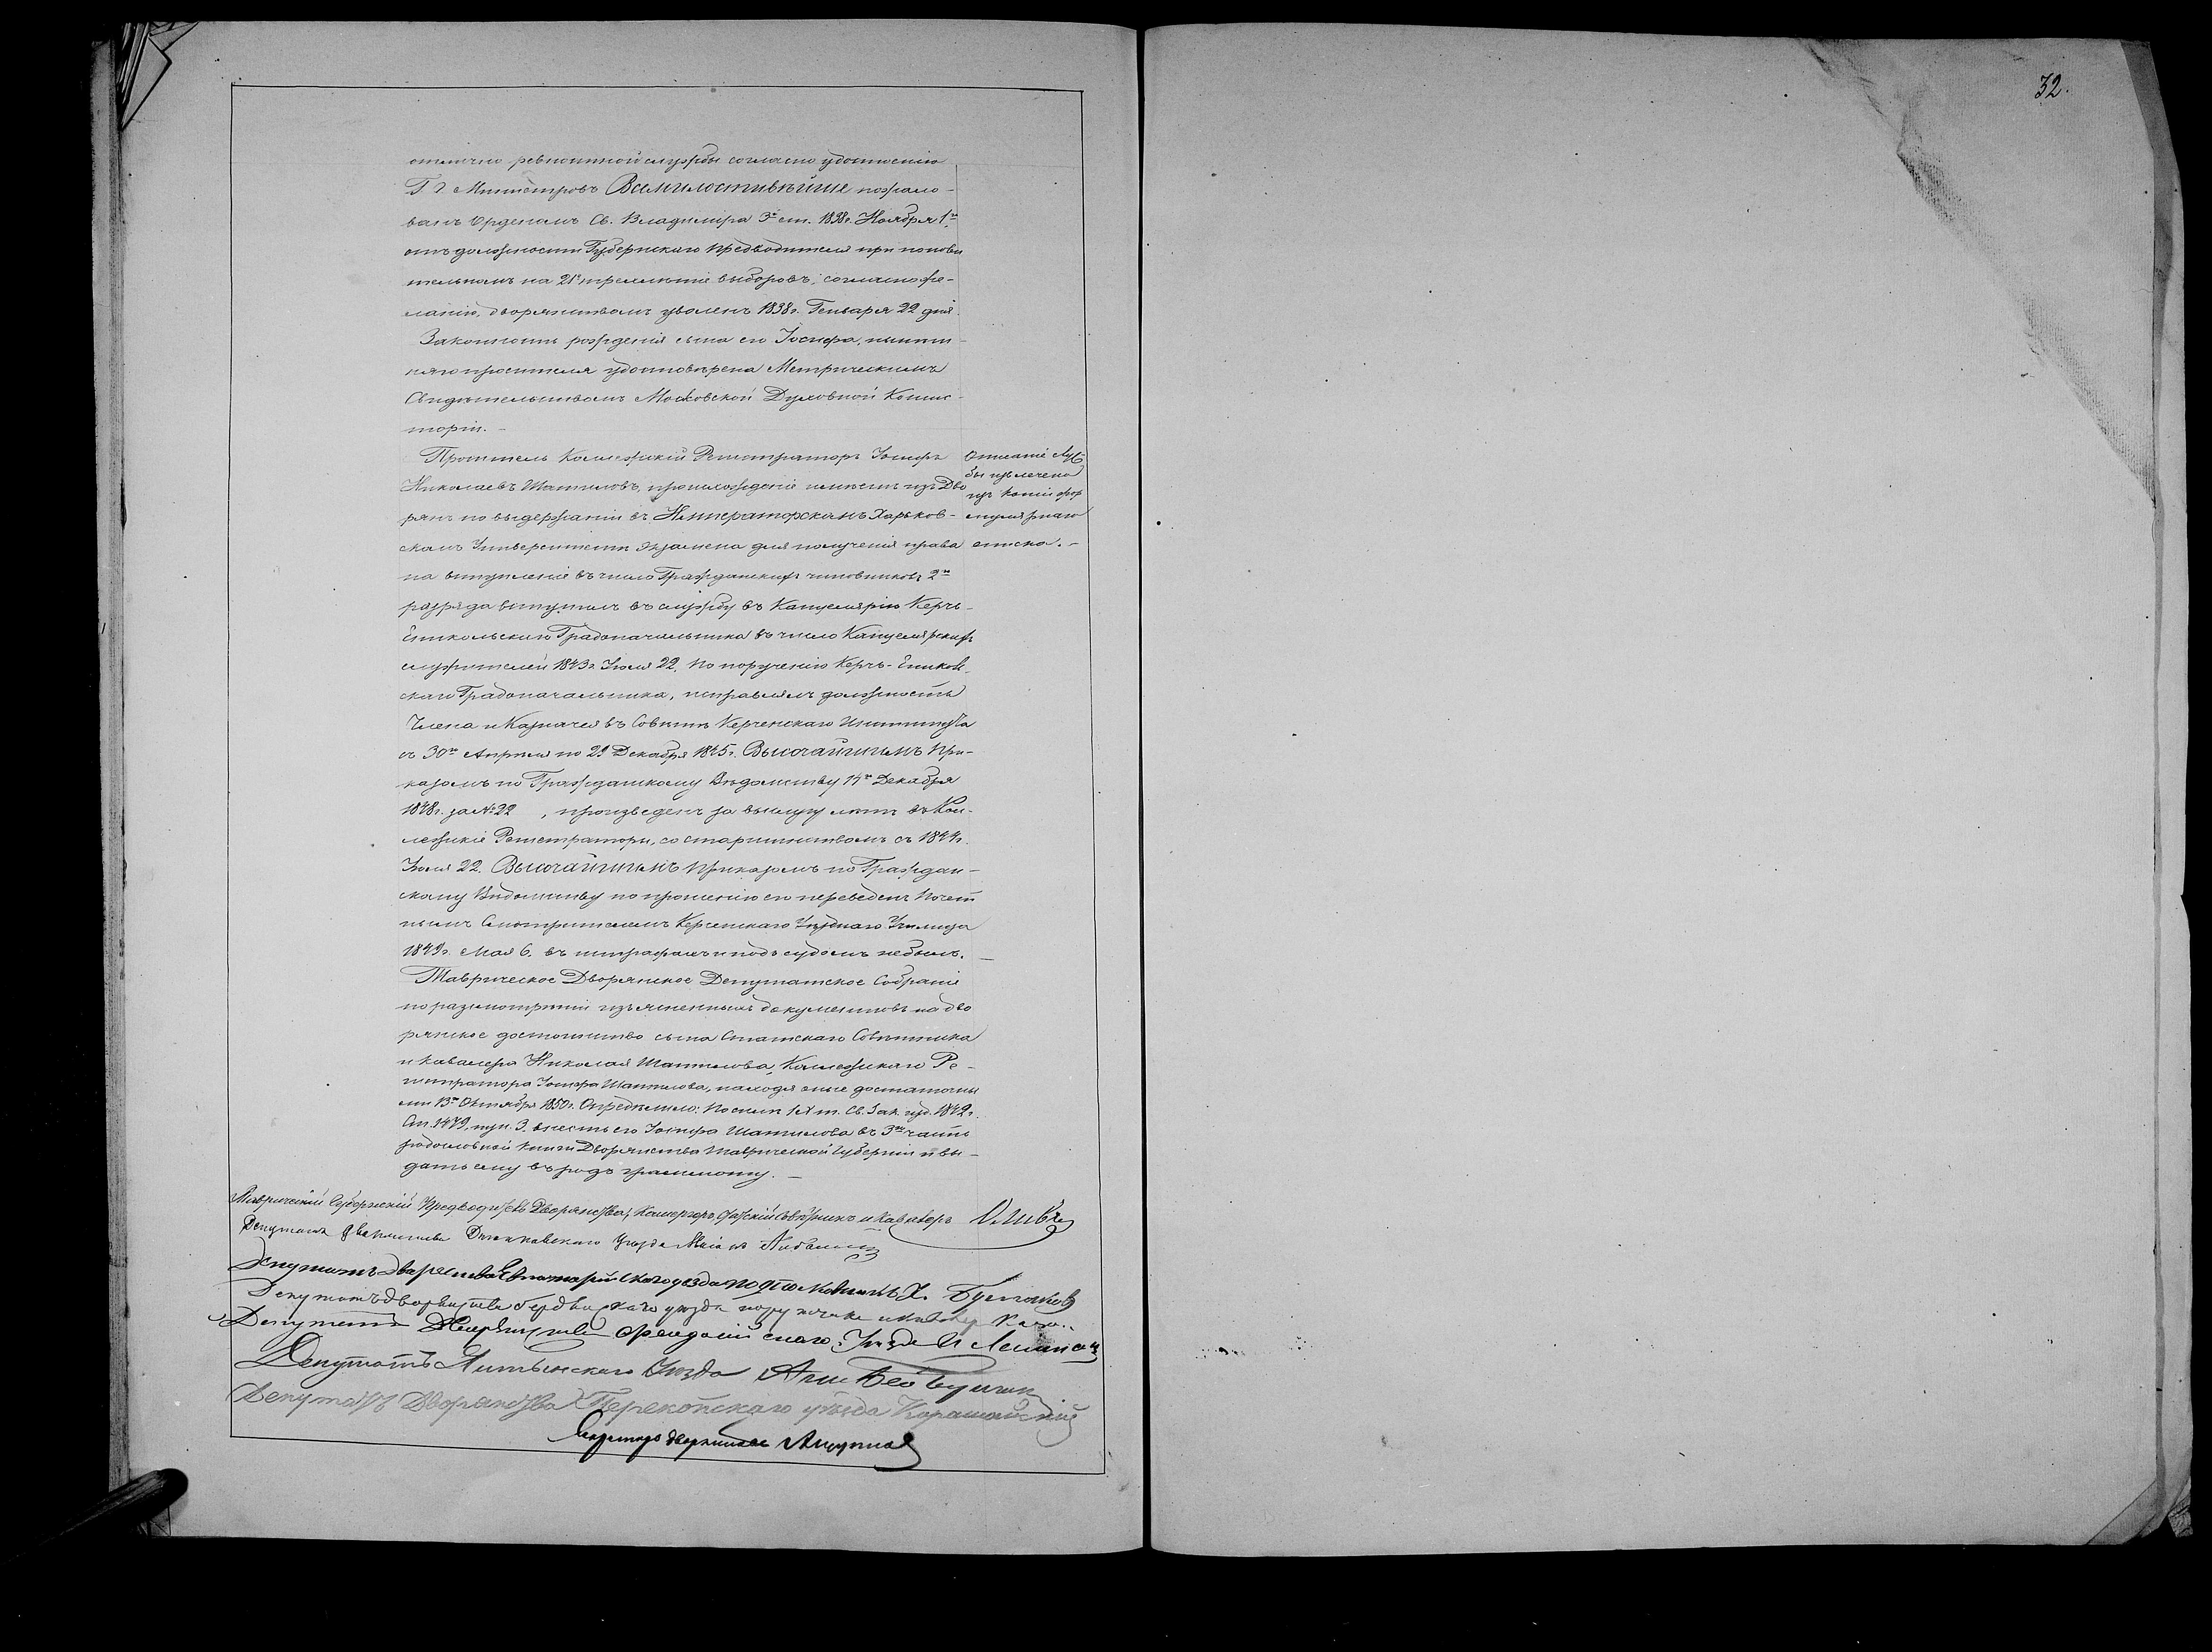 32.
отлично ревностной службы согласно удостоенію
Г. г. Министровъ Всемилостивѣйше пожало-
ванъ Орденомъ Св. Владиміра 3й ст. 1838г. Ноября 1го
отъ должности Губернскаго Предводителя при
на 21е трехлѣтіе выборовъ, согласно же-
ланію, дворянствомъ уволенъ 1838г. Генваря 22 дня.
Законность рожденія сына его Іосифа, нынѣш-
няго просителя удостовѣрена Метрическимъ
Свидѣтельствомъ Московской Духовной Консис-
торіи. -
Проситель Коллежскій Регистраторъ Іосифъ
Николаевъ Шатиловъ, происхожденіе имѣетъ изъ Дво
рянъ по выдержаніи въ Императорскомъ Харьков-
скомъ Университетѣ экзамена для полученія права
на вступленіе въ число Гражданскихъ чиновниковъ 2го
разряда вступилъ въ службу въ Канцелярію Керчь-
Еникольскаго Градоначальника въ число Канцелярскихъ
служителей 1843г. Іюля 22. По порученію Керчь-Ениколь-
скаго Градоначальника, исправлялъ должность
Члена и Казначея въ Совѣтѣ Керченскаго Института
съ 30го Апрѣля по 29 Декабря 1845г. Высочайшимъ При-
казомъ по Гражданскому Вѣдомству Декабря
1848г. за № 22 , произведенъ за выслугу лѣтъ въ Кол-
лежскіе Регистраторы, со старшинствомъ съ 1844г.
Іюля 22. Высочайшимъ Приказомъ по Граждан-
скому Вѣдомству по прошенію его переведенъ Почет
нымъ Смотрителемъ Керченскаго Уѣзднаго Училища
1849г. Мая 6. въ штрафахъ и подъ судомъ небылъ. -
Таврическое Дворянское Депутатское Собраніе
по разсмотрѣніи изъясненныхъ документовъ на дво
рянское достоинство сына Статскаго Совѣтника
и Кавалера Николая Шатилова, Коллежскаго Ре-
гистратора Іосифа Шатилова, находя оные достаточны
ми 13го Октября 1850г. Опредѣлило: На осн. IX т. Св. Зак. изд. 1842г.
Ст. 1479, пун. 3. внесть его Іосифа Шатилова въ 3ю часть
родословной книги Дворянства Таврической Губерніи и вы-
дать ему въ родъ грамоту. -
Описаніе служ
бы извлечено
изъ копіи фор
мулярнаго
списка. -
Таврическій Губернскій Предводитель Дворянства, Камергеръ, Статскій Совѣтникъ и Кавалеръ Оливъ
Депутатъ Дворянства Днѣпровскаго Уѣзда
Депутатъ дворянства Евпаторійскаго уезда
Депутатъ дворянства Бердянскаго уѣзда поручикъ и кавалеръ
Депутатъ Дворянства Феодосійскаго Уѣзда
Депутатъ Ялтинскаго Уѣзда
Депутатъ Дворянства Перекопскаго уѣзда Карашайскій
Секретарь дворянства